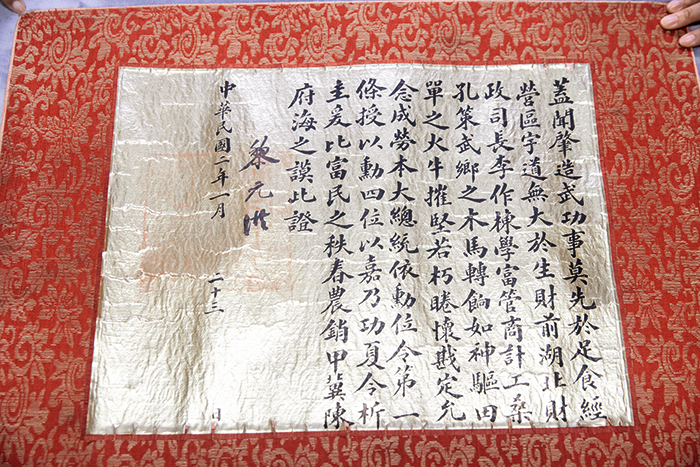 蓋聞肇造武功事莫先於足食經
營區宇道無大於生財前湖北財
政司長李作棟學富管商計工桑
孔策武鄉之木馬轉餉如神驅田
單之火牛摧堅若朽睠懷戡定允
念成勞本大總統依勳位令第一
條授以勳四位以嘉乃功夏令析
圭爰比富民之秩春農銷甲冀陳
府海之謨此證
黎元洪
中華民國二年一月 二十三 日